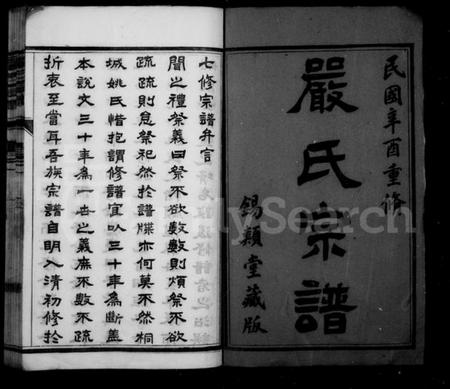 民國辛酉重脩
嚴氏宗譜
錫類堂藏版
七修宗譜弁言
聞之禮祭義曰祭不欲數數則煩祭不欲
疏疏則怠祭祀然於譜牒亦何莫不然桐
城姚氏惜抱謂修譜宜以三十年為斷蓋
本說文三十年為一世之義庶不數不疏
折衷至當耳吾族宗譜自明入清初修於